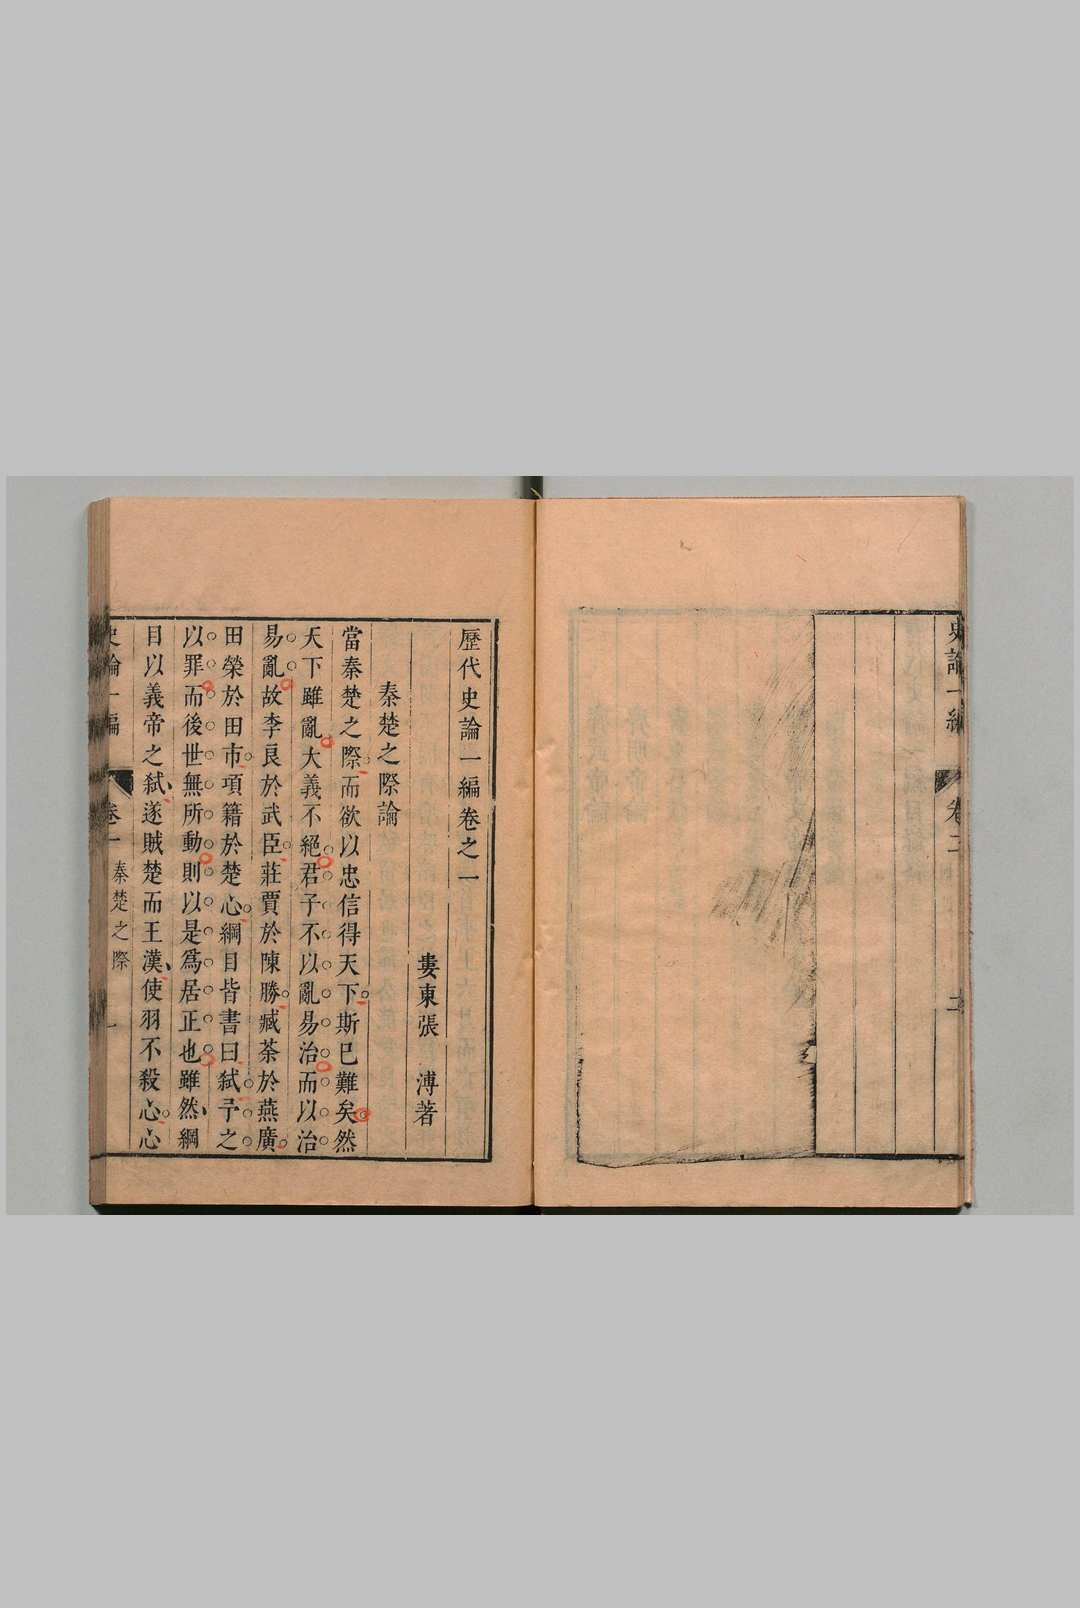 史論一編
卷二
歷代史論一編卷之一
婁東張　溥著
秦楚之際論
當秦楚之際而欲以忠信得天下斯已難矣然
天下雖亂大義不絕君子不以亂易治而以治
易亂故李良於武臣莊賈於陳勝臧荼於燕廣
田榮於田市項籍於楚心綱目皆書曰弑予之
以罪而後世無所動則以是爲居正也雖然綱
目以義帝之弑遂賊楚而王漢使羽不殺心心
史論一編
卷一
秦楚之際
一